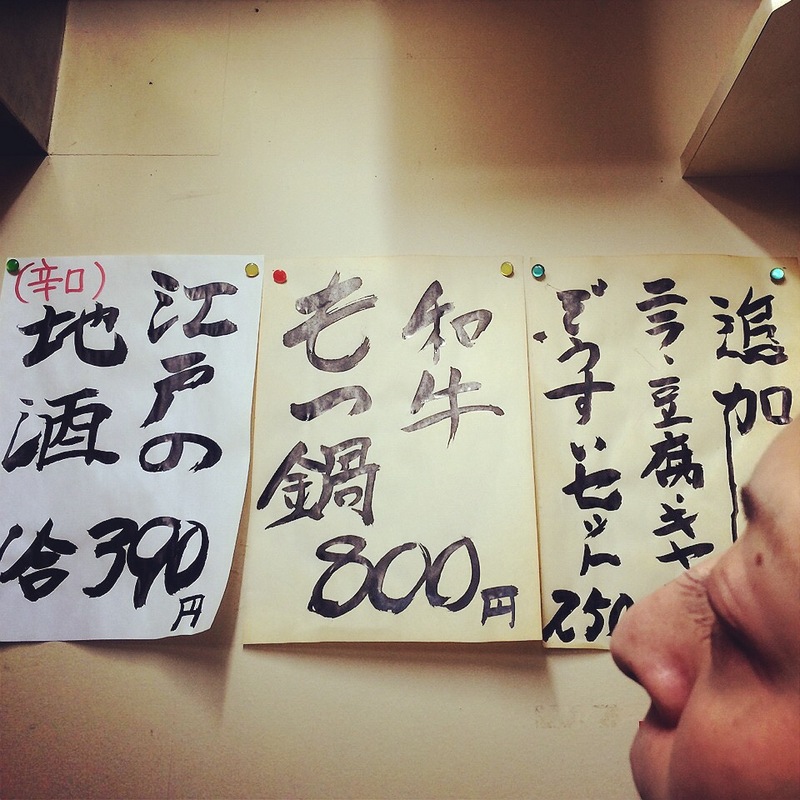 (辛口)
江戸の
地酒
390円
和牛
もつ鍋
800円
追加
ニラ・豆腐・キャ
ぞうすいセット
250